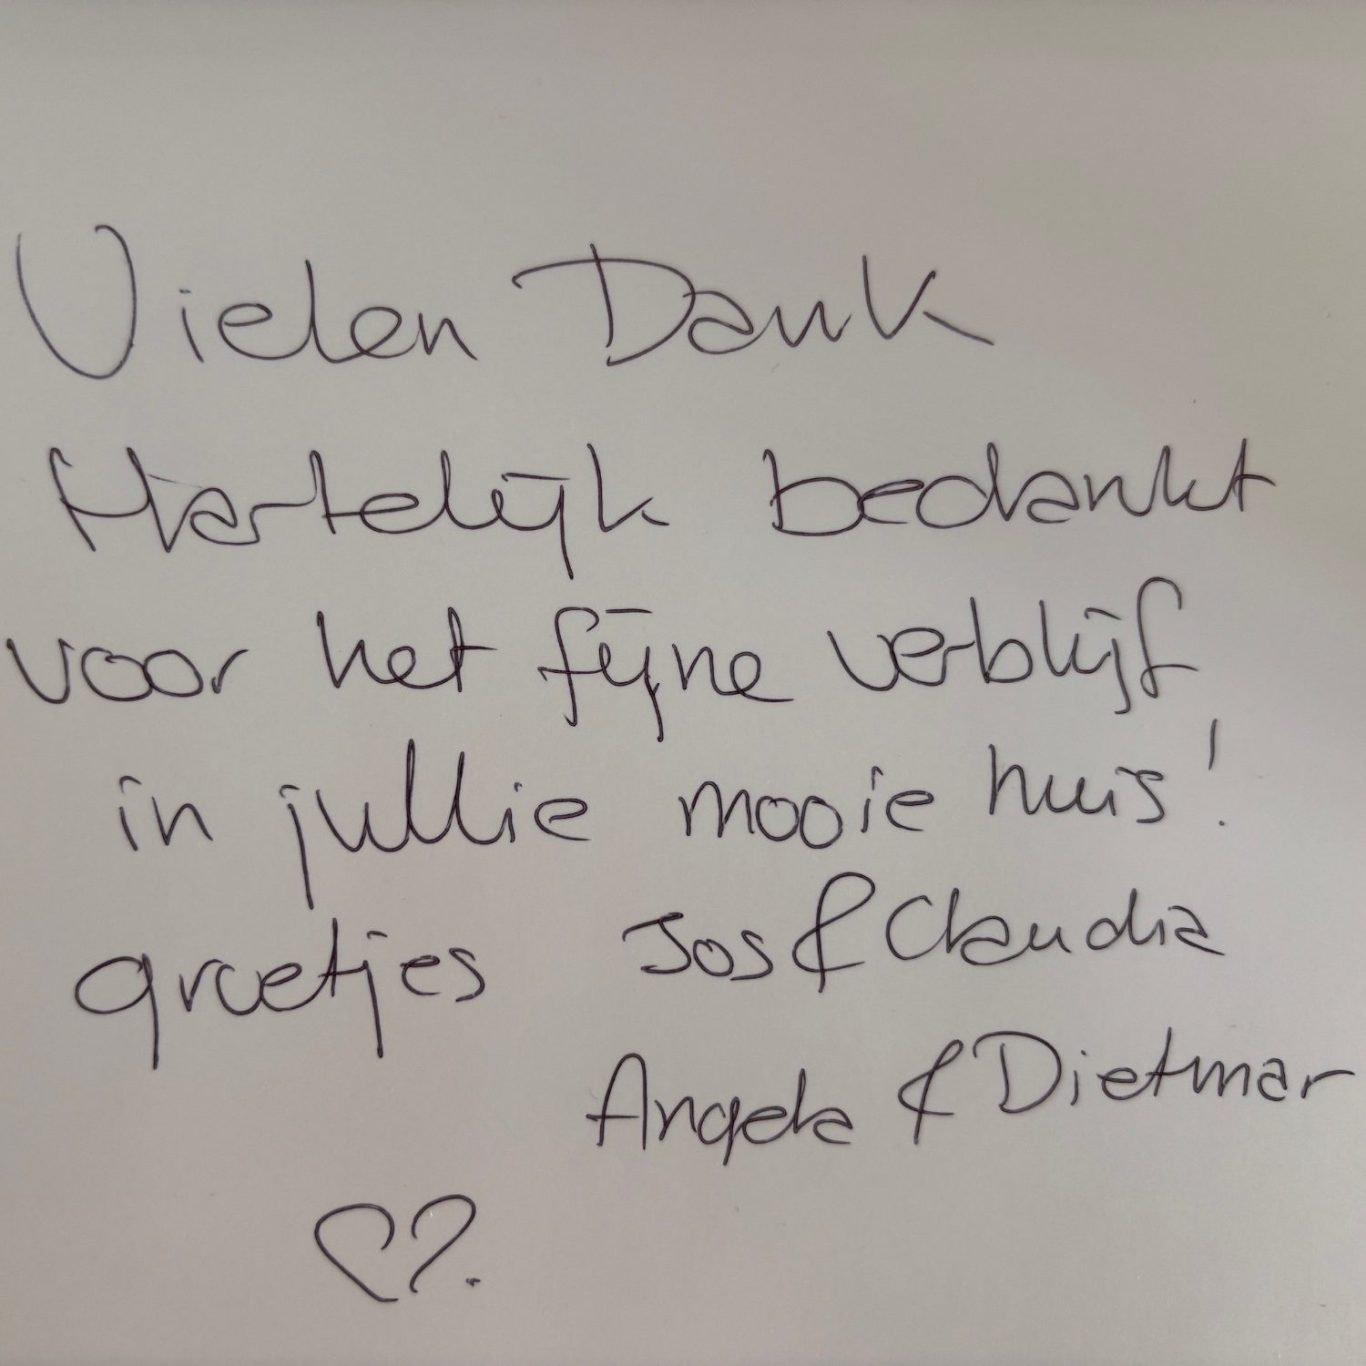 Vielen Dank
Hartelijk bedankt
voor het fijne verblijf
in jullie mooie huis!
groetjes Jos & Claudia
Angela & Dietmar